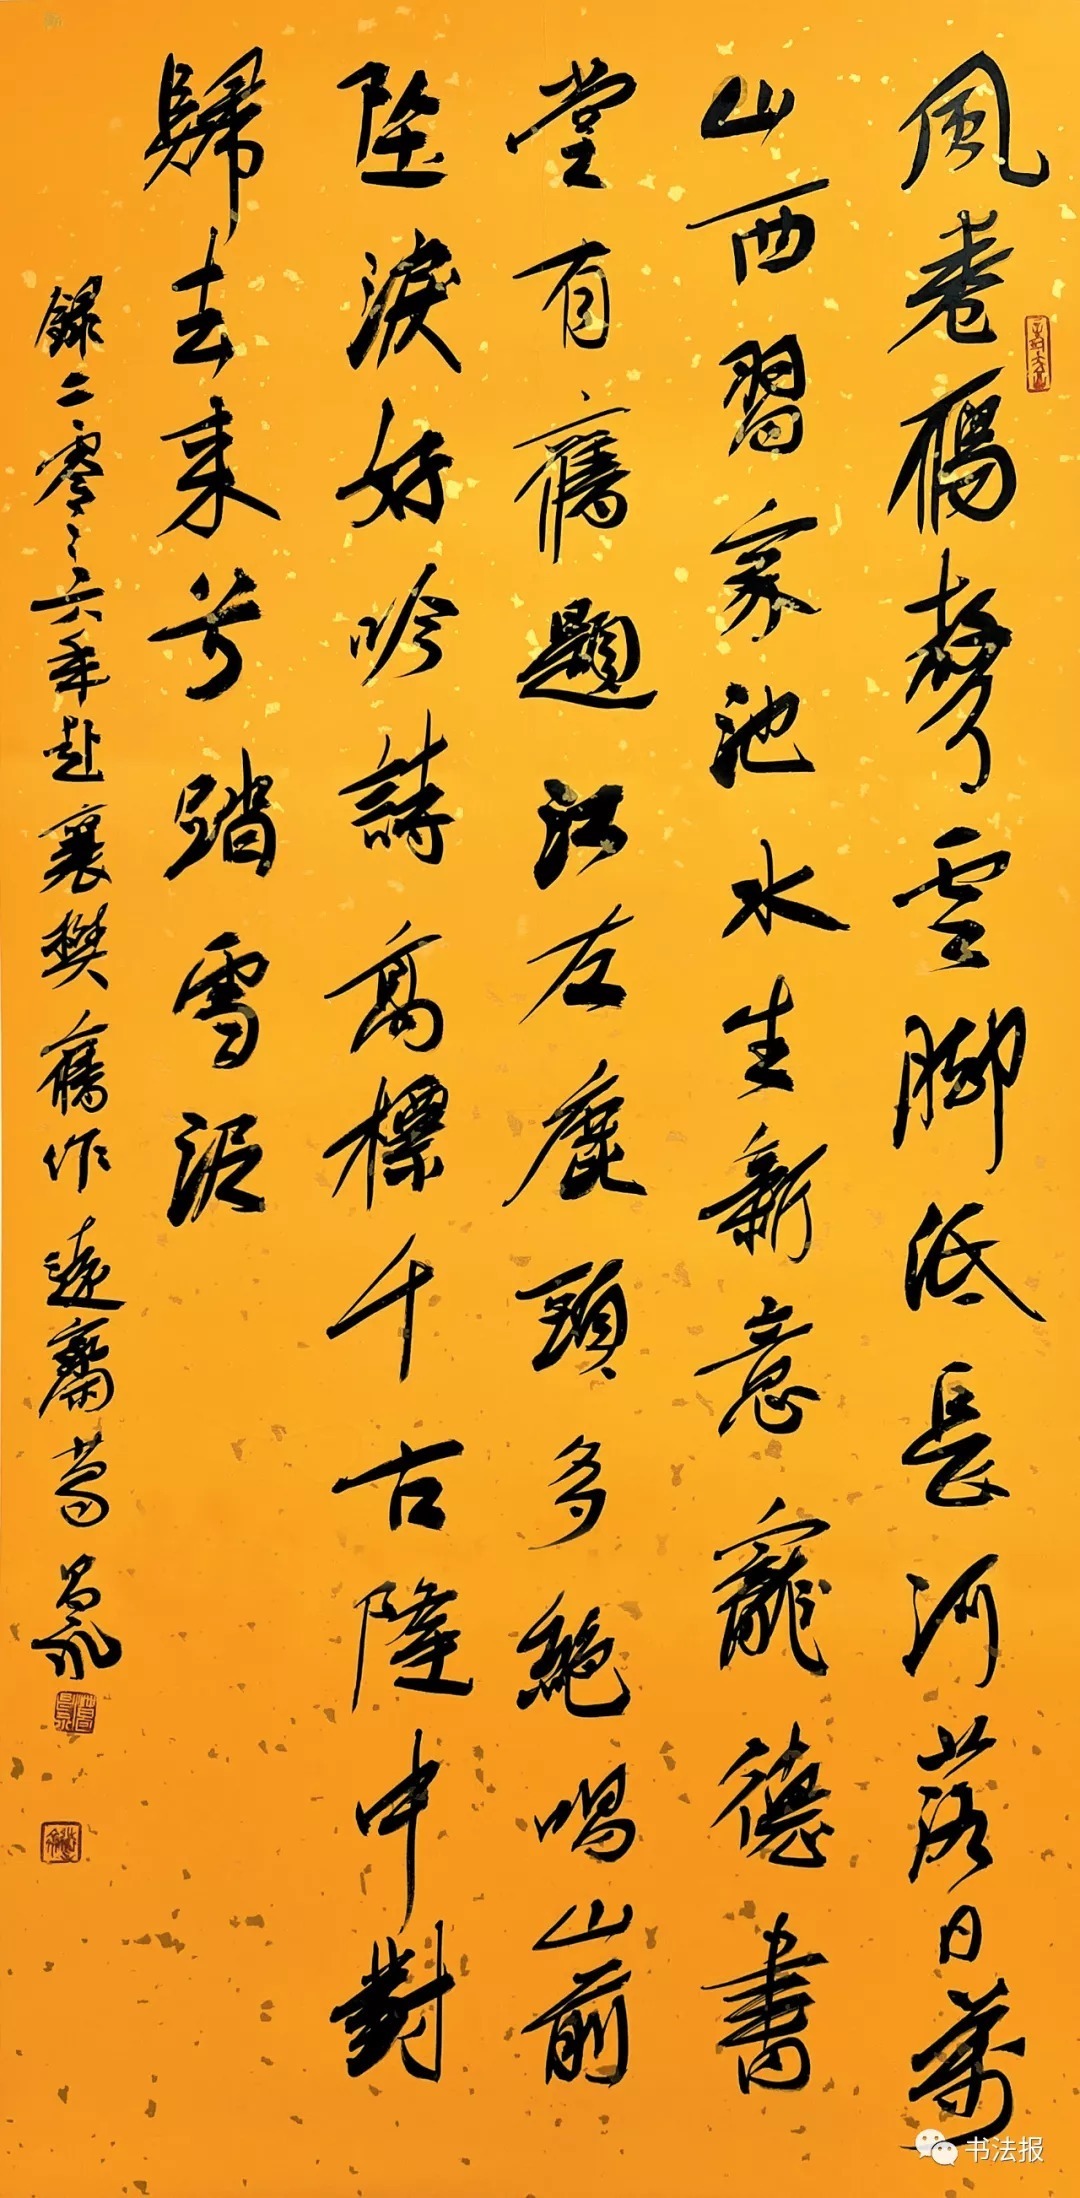 風卷雁聲雲脚低長河落日萬
山西習家池水生新意寵德書
堂有舊題江左鹿頭多絕唱山前
墜淚好吟詩高標千古隆中對
歸去來兮踏雪泥
錄二零零六年赴襄樊舊作遠齋葛昌永
书法报